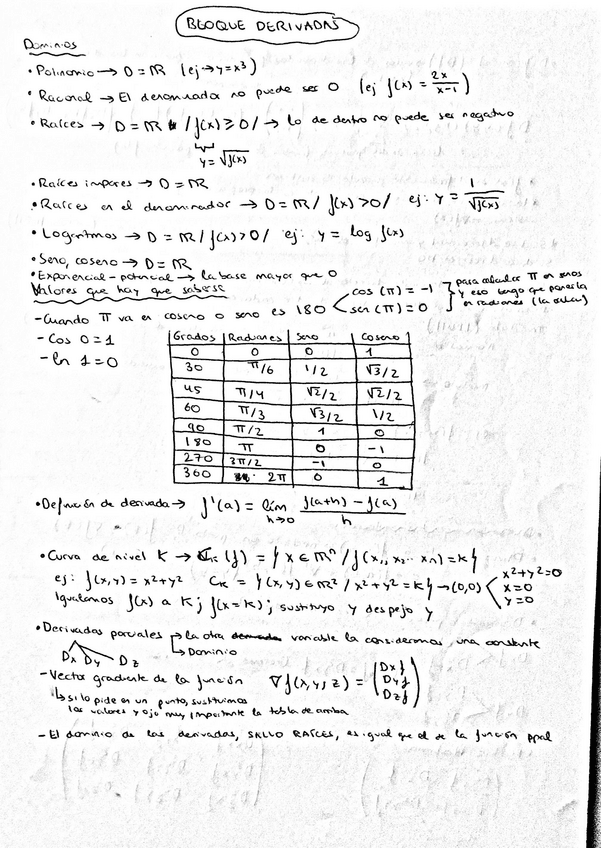 BLOQUE DERIVADAS
Dominios
• Polinomio → D = ℝ (ej → y = x³)
• Racional → El denominador no puede ser 0 (ej f(x) = 2x/x-1)
• Raíces → D = ℝ / f(x) ≥ 0 / → lo de dentro no puede ser negativo
y = √f(x)
• Raíces impares → D = ℝ
• Raíces en el denominador → D = ℝ / f(x) > 0 / ej: y = 1/√f(x)
• Logaritmos → D = ℝ / f(x) > 0 / ej: y = log f(x)
• Seno, coseno → D = ℝ
• Exponencial - potencial → la base mayor que 0
Valores que hay que saberse
- Cuando π va en coseno o seno es 180 < cos (π) = -1
sen (π) = 0
para calcular π en senos
y eso tengo que ponerla
en radianes (la calcu)
- Cos 0 = 1
- ln 1 = 0
Grados Radianes Seno Coseno
0 0 0 1
30 π/6 1/2 √3/2
45 π/4 √2/2 √2/2
60 π/3 √3/2 1/2
90 π/2 1 0
180 π 0 -1
270 3π/2 -1 0
360 2π 0 1
• Definición de derivada → f'(a) = lím h→0 f(a+h) - f(a) / h
• Curva de nivel K → Cₖ (f) = { x ∈ ℝⁿ / f(x₁, x₂... xₙ) = k }
ej: f(x,y) = x²+y² Cₖ = { (x,y) ∈ ℝ² / x²+y² = k } → (0,0) < x²+y²=0
x=0
y=0
Igualamos f(x) a K; f(x=k); sustituyo y despejo y
• Derivadas parciales → la otra variable la consideramos una constante
↳ Dominio
Dx Dy Dz
- Vector gradiente de la función ∇f(x,y,z) = (Dxf Dyf Dzf)
↳ si lo pide en un punto, sustituimos
los valores y ojo muy importante la tabla de arriba
- El dominio de las derivadas, SALVO RAÍCES, es igual que el de la función ppal